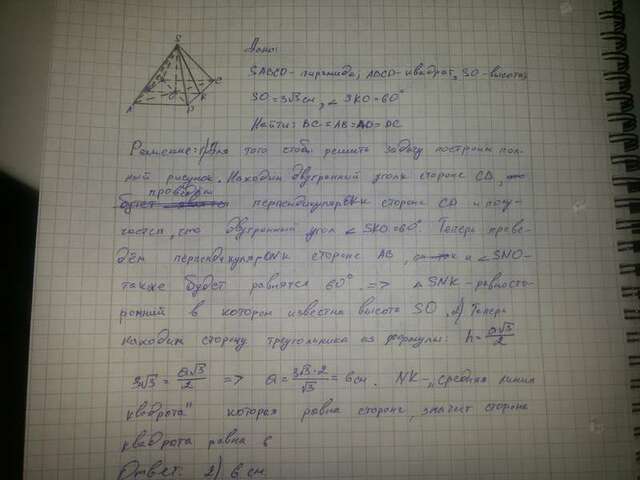 S
A
D
C
K
O
Дано:
SABCD - пирамида; ABCD - квадрат, SO - высота;
SO = 3√3 см, ∠ SKO = 60°
Найти: BC = AB = AD = DC
Решение: 1) Для того чтобы решить задачу построим пол-
ный рисунок. Находим двугранный угол к стороне CD,
проведём
перпендикуляр OK к стороне CD и полу-
чается, что двугранный угол ∠ SKO = 60°. Теперь прове-
дём перпендикуляр ON к стороне AB, и ∠ SNO -
также будет равняться 60° => △ SNK - равносто-
ронний в котором известна высота SO. 2) Теперь
находим сторону треугольника из формулы: h = a√3/2
3√3 = a√3/2 => a = 3√3·2/√3 = 6 см. NK - "средняя линия
квадрата" которая равна стороне, значит сторона
квадрата равна 6
Ответ: 2) 6 см